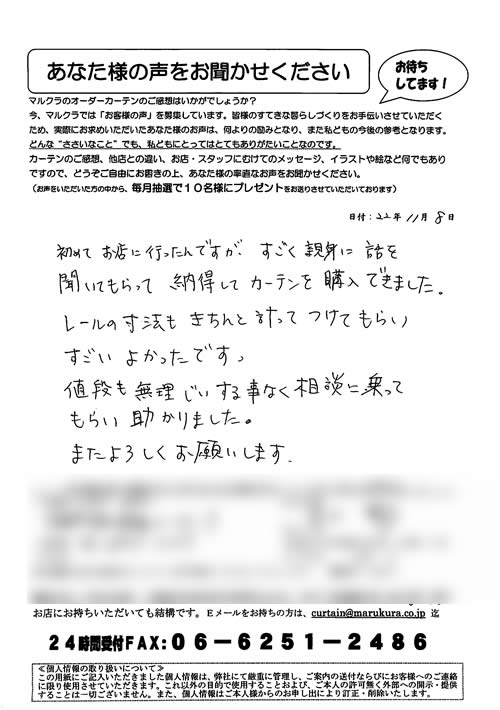 あなた様の声をお聞かせください
お待ち
してます!
マルクラのオーダーカーテンのご感想はいかがでしょうか?
今、マルクラでは「お客様の声」を募集しています。皆様のすてきな暮らしづくりをお手伝いさせていただく
ため、実際にお求めいただいたあなた様のお声は、何よりの励みとなり、また私どもの今後の参考となります。
どんな“ささいなこと”でも、私どもにとってはとてもありがたいことなのです。
カーテンのご感想、他店との違い、お店・スタッフにむけてのメッセージ、イラストや絵など何でもあり
ですので、どうぞご自由にお書きの上、あなた様の率直なお声をお聞かせください。
(お声をいただいた方の中から、毎月抽選で10名様にプレゼントをお送りさせていただいております)
日付:22年11月8日
初めてお店に行ったんですが、すごく親身に話を
聞いてもらって納得してカーテンを購入できました。
レールの寸法もきちんと計ってつけてもらい
すごいよかったです。
値段も無理じいする事なく相談に乗って
もらい助かりました。
またよろしくお願いします。
お店にお持ちいただいても結構です。Eメールをお持ちの方は、curtain@marukura.co.jp 迄
24時間受付FAX:06-6251-2486
≪個人情報の取り扱いについて≫
この用紙にご記入いただきました個人情報は、弊社にて厳重に管理し、ご案内の送付ならびにお客様へのご連絡
に限り使用させていただきます。これ以外の目的で使用することおよび、ご本人の許可無く外部への開示・提供
することは一切ございません。また、個人情報はご本人様からのお申し出により訂正・削除いたします。